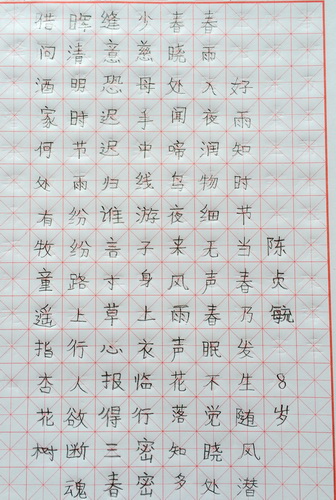 陈贞毓8岁
好雨知时节当春乃发生随风潜
春雨入夜润物细无声春眠不觉晓处
春晓处闻啼鸟夜来风雨声花落知多
少慈母手中线游子身上衣临行密密
缝意恐迟迟归谁言寸草心报得三春
晖清明时节雨纷纷路上行人欲断魂
借问酒家何处有牧童遥指杏花树